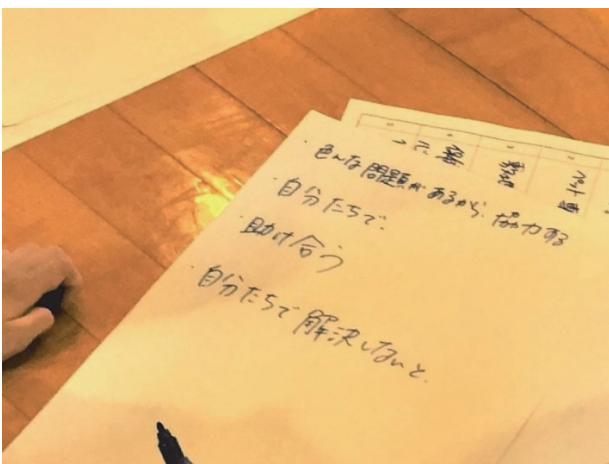 ・色んな問題があるから、協力する
・自分たちで、
・助け合う
・自分たちで解決しないと、